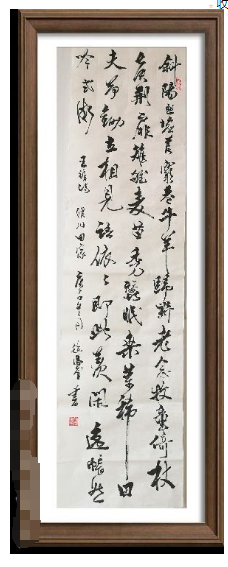 斜陽照墟落窮巷牛羊歸野老念牧童倚杖
候荊扉雉雊麥苗秀蠶眠桑葉稀田
夫荷鋤立相見語依々即此羨閑逸悵然
吟式微
王維詩 渭川田家 庚子年 書